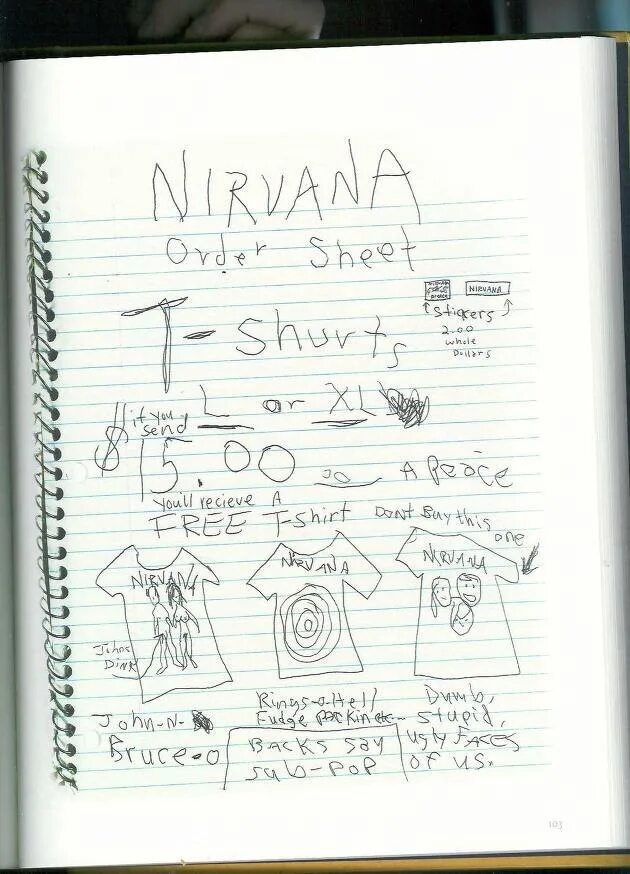 NIRVANA
Order Sheet
NIRVANA
Stickers
2.00
whole
Dollars
T-Shurts
L or XL
if you
send
$15.00 A Peace
you'll recieve A
FREE T-shirt
Dont Buy this
one
NIRVANA
NIRVANA
NIRVANA
Johns
Dink
John-N-
Bruce-o
Rings-o-Hell
Fudge
BACKS SAY
sub-pop
Dumb,
stupid,
ugly FACES
of us.
103